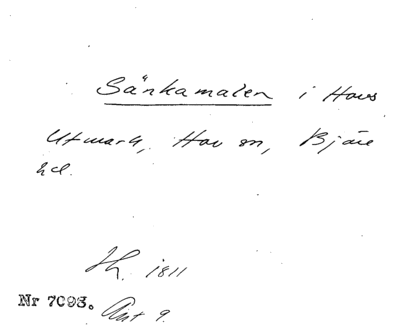 Sänkamalen i Hovs
Utmark, Hov sn, Bjäre
hd.
Lh. 1811
Nr 7093. Ant 9.